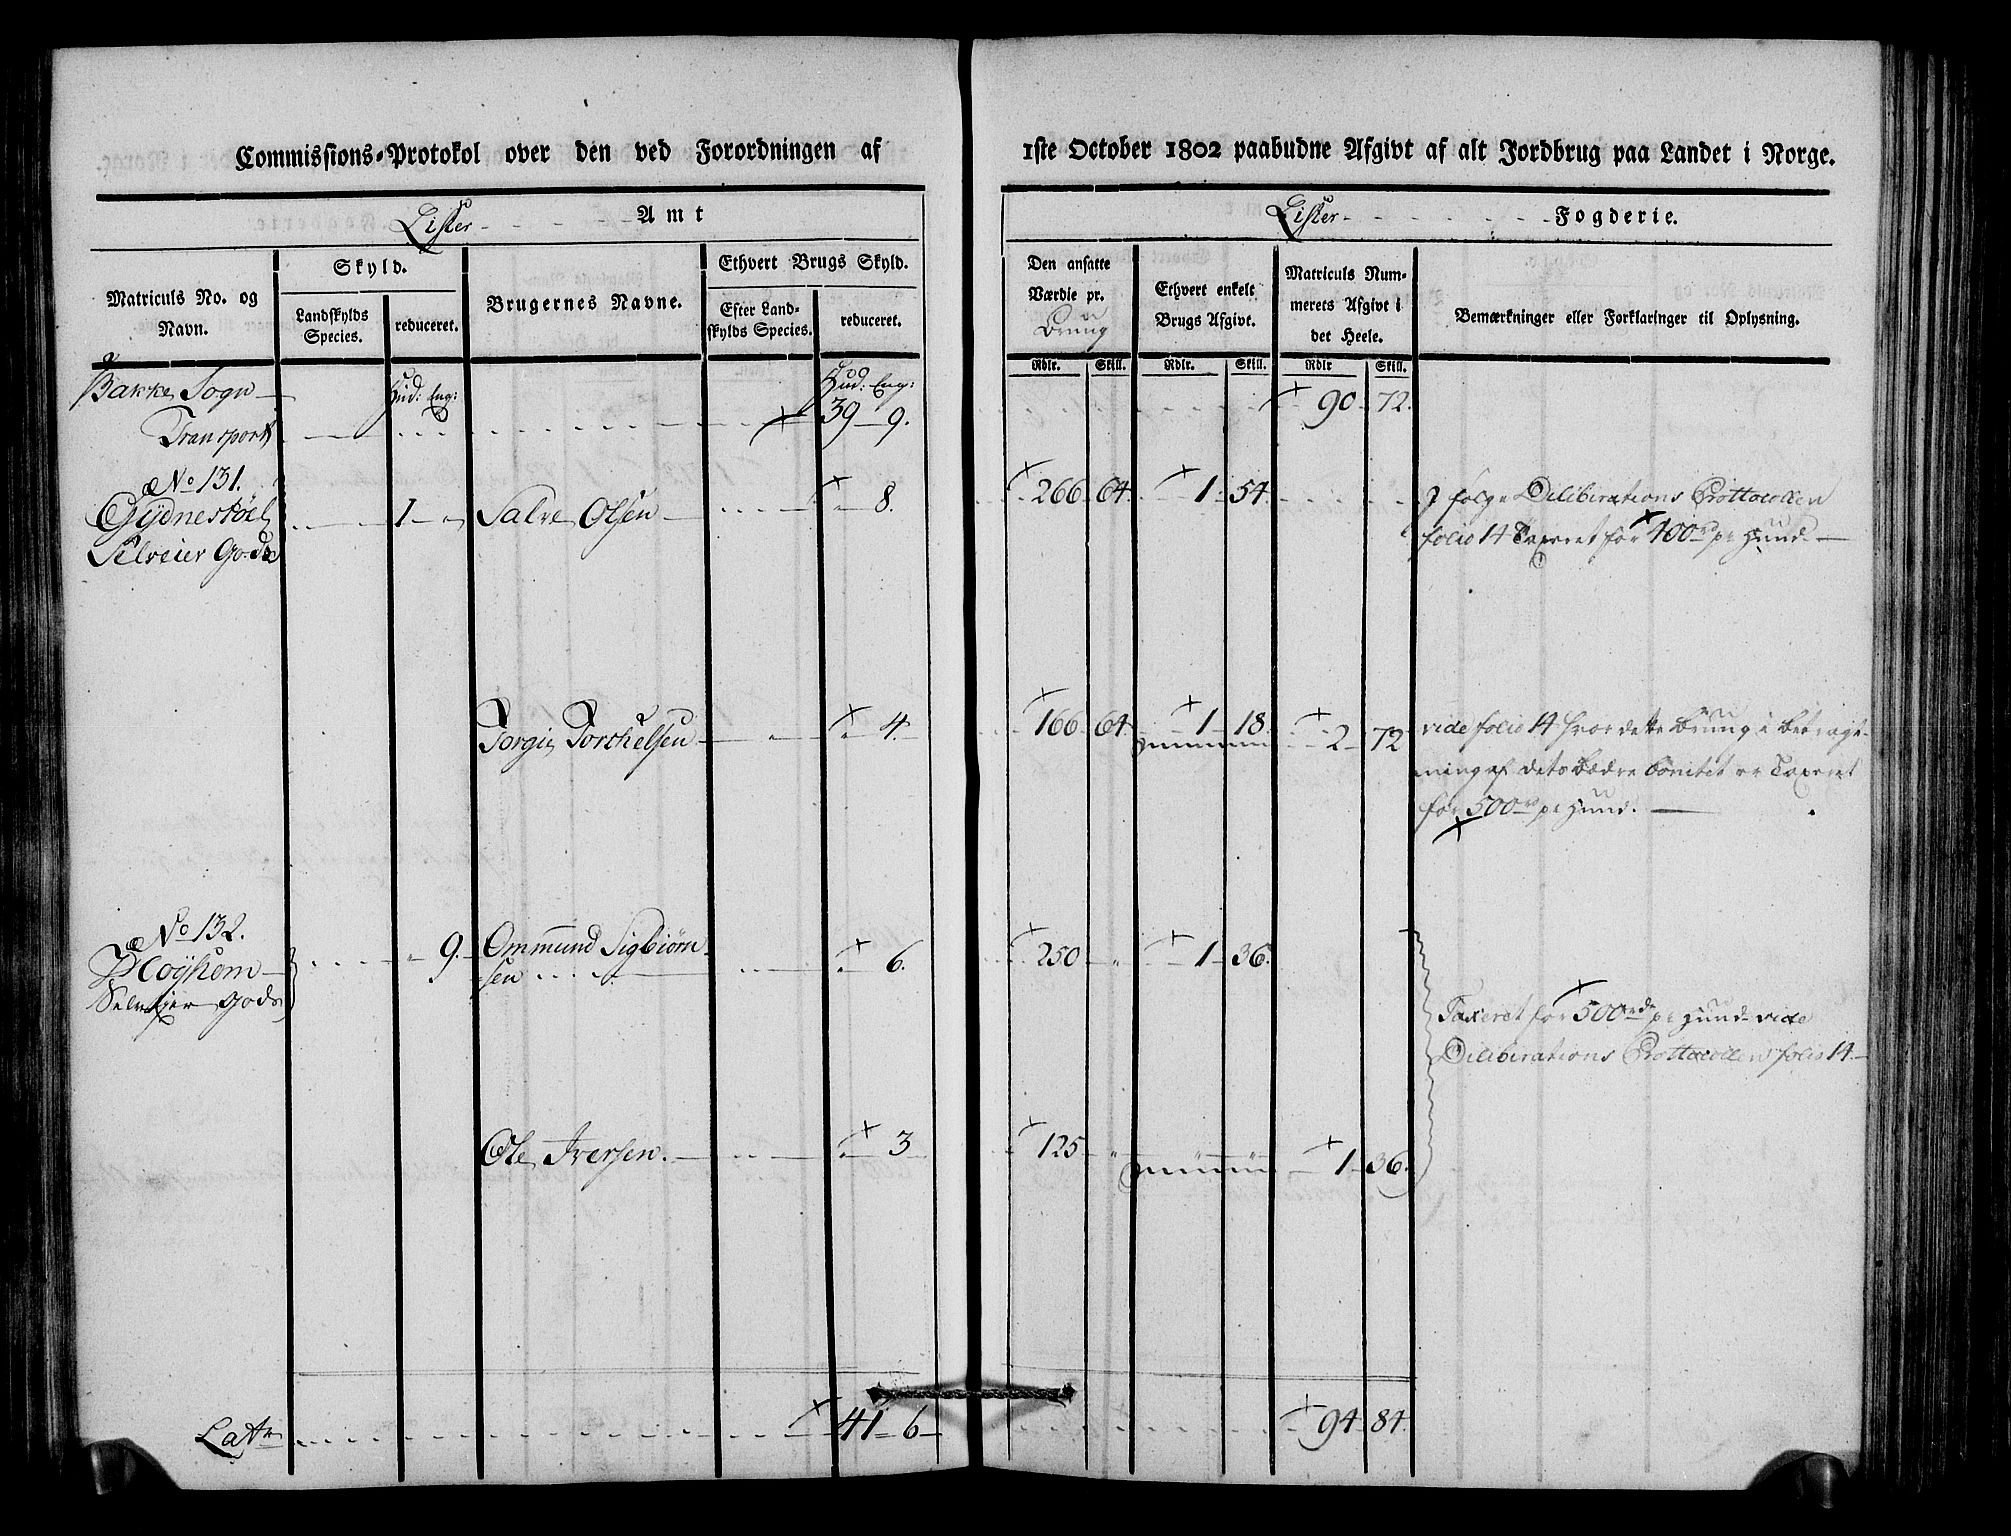 Commissions-Protokol over den ved Forordningen af
Lister - - - - - Amt
Matriculs No. og Navn.
Skyld.
Landskylds Species.
reduceret.
Brugernes Navne.
Ethvert Brugs Skyld.
Efter Landskylds Species.
reduceret.
Bakke Sogn Hud: Eng: Hud: Eng:
Transport 39 9.
No 131.
Gydnestöel 1 " Salve Olsen 8.
Selveier Gods
Torgie Torchelsen 4.
No 132.
Høyhom 9. Ommund Sigbiørn
Selvejer Gods sen 6.
Ole Iversen. 3
Latr 41 6
1ste October 1802 paabudne Afgivt af alt Jordbrug paa Landet i Norge.
Lister - - - - - - - Fogderie.
Den ansatte Værdie pr. Brug
Ethvert enkelt Brugs Afgivt.
Matriculs Nummerets Afgivt i det Heele.
Bemærkninger eller Forklaringer til Oplysning.
Rdlr. Skill. Rdlr. Skill. Rdlr Skill.
90 72.
266 64. 1 54. I følge Diliberations Prottocollen
folio 14 Taxeret for 400rd pr Hund
166 64 1 18. 2 72 vide folio 14 hvor dette Brug i betragt-
ning af dets bædre bonitet er Taxeret
for 500rd pr Hund.
250 " 1 36.
Taxeret for 500rd pr Hund vide
Diliberations Prottocollen folio 14
125 " 1 36.
94 84.